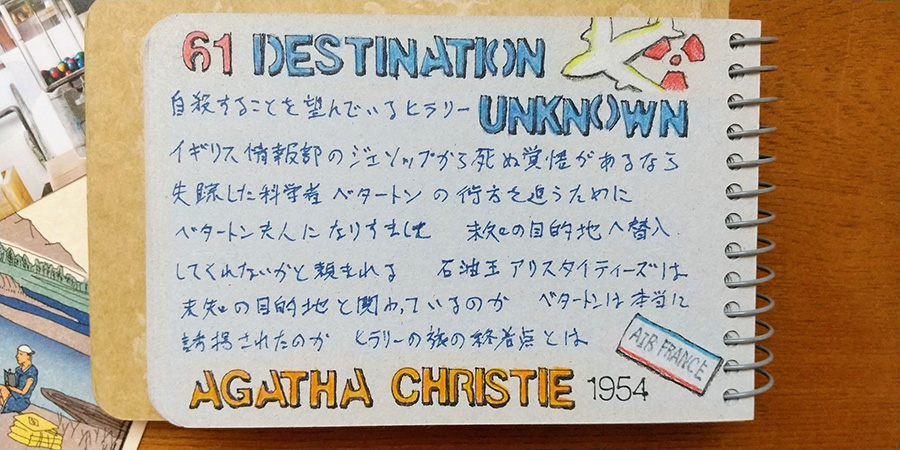 61 DESTINATION
UNKNOWN
自殺することを望んでいるヒラリー
イギリス情報部のジェソップから死ぬ覚悟があるなら
失踪した科学者ベタートンの行方を追うために
ベタートン夫人になりすまし 未知の目的地へ潜入
してくれないかと頼まれる 石油王アリスタイディーズは
未知の目的地と関わっているのか ベタートンは本当に
誘拐されたのか ヒラリーの旅の終着点とは
AIR FRANCE
AGATHA CHRISTIE 1954